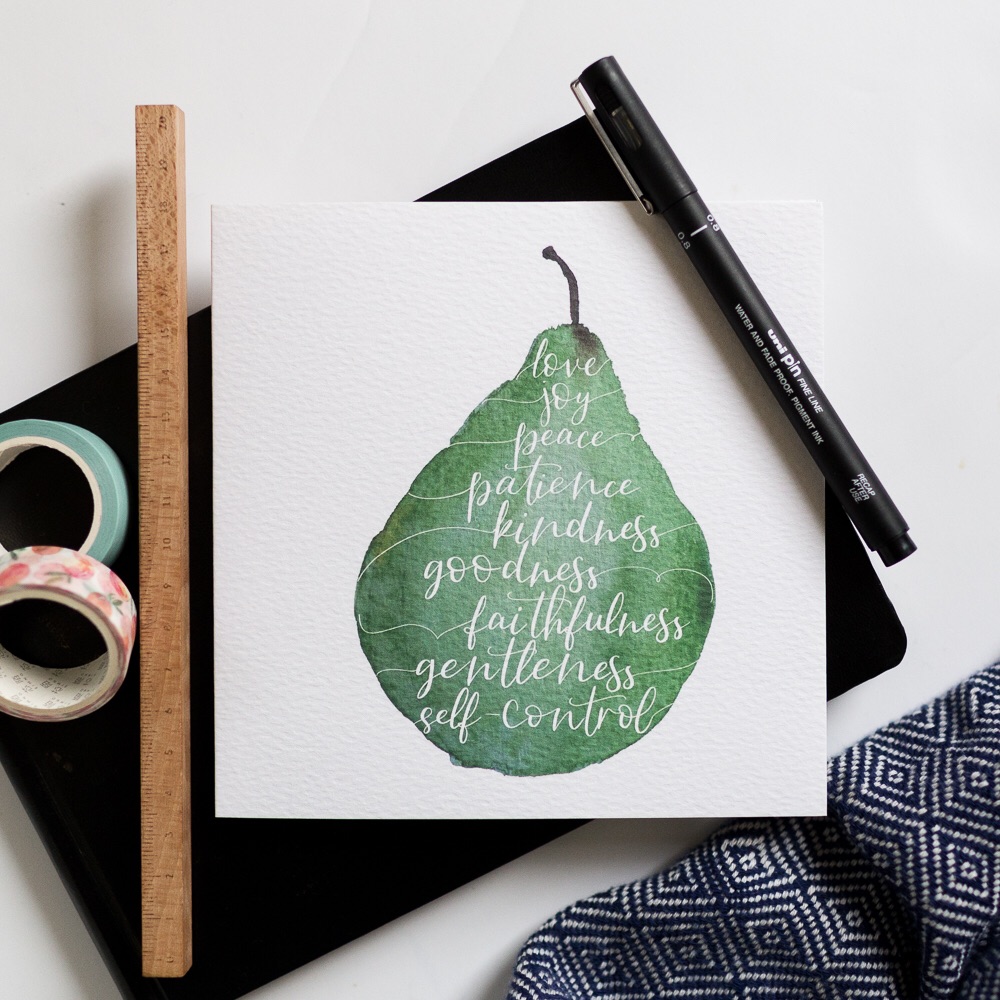 love
joy
peace
patience
kindness
goodness
faithfulness
gentleness
self control
0.8
0.8
uni pin FINE LINE
WATER AND FADE PROOF, PIGMENT INK
RECAP
AFTER
USE
20
19
18
17
15
14
13
12
11
10
9
7
6
5
4
3
2